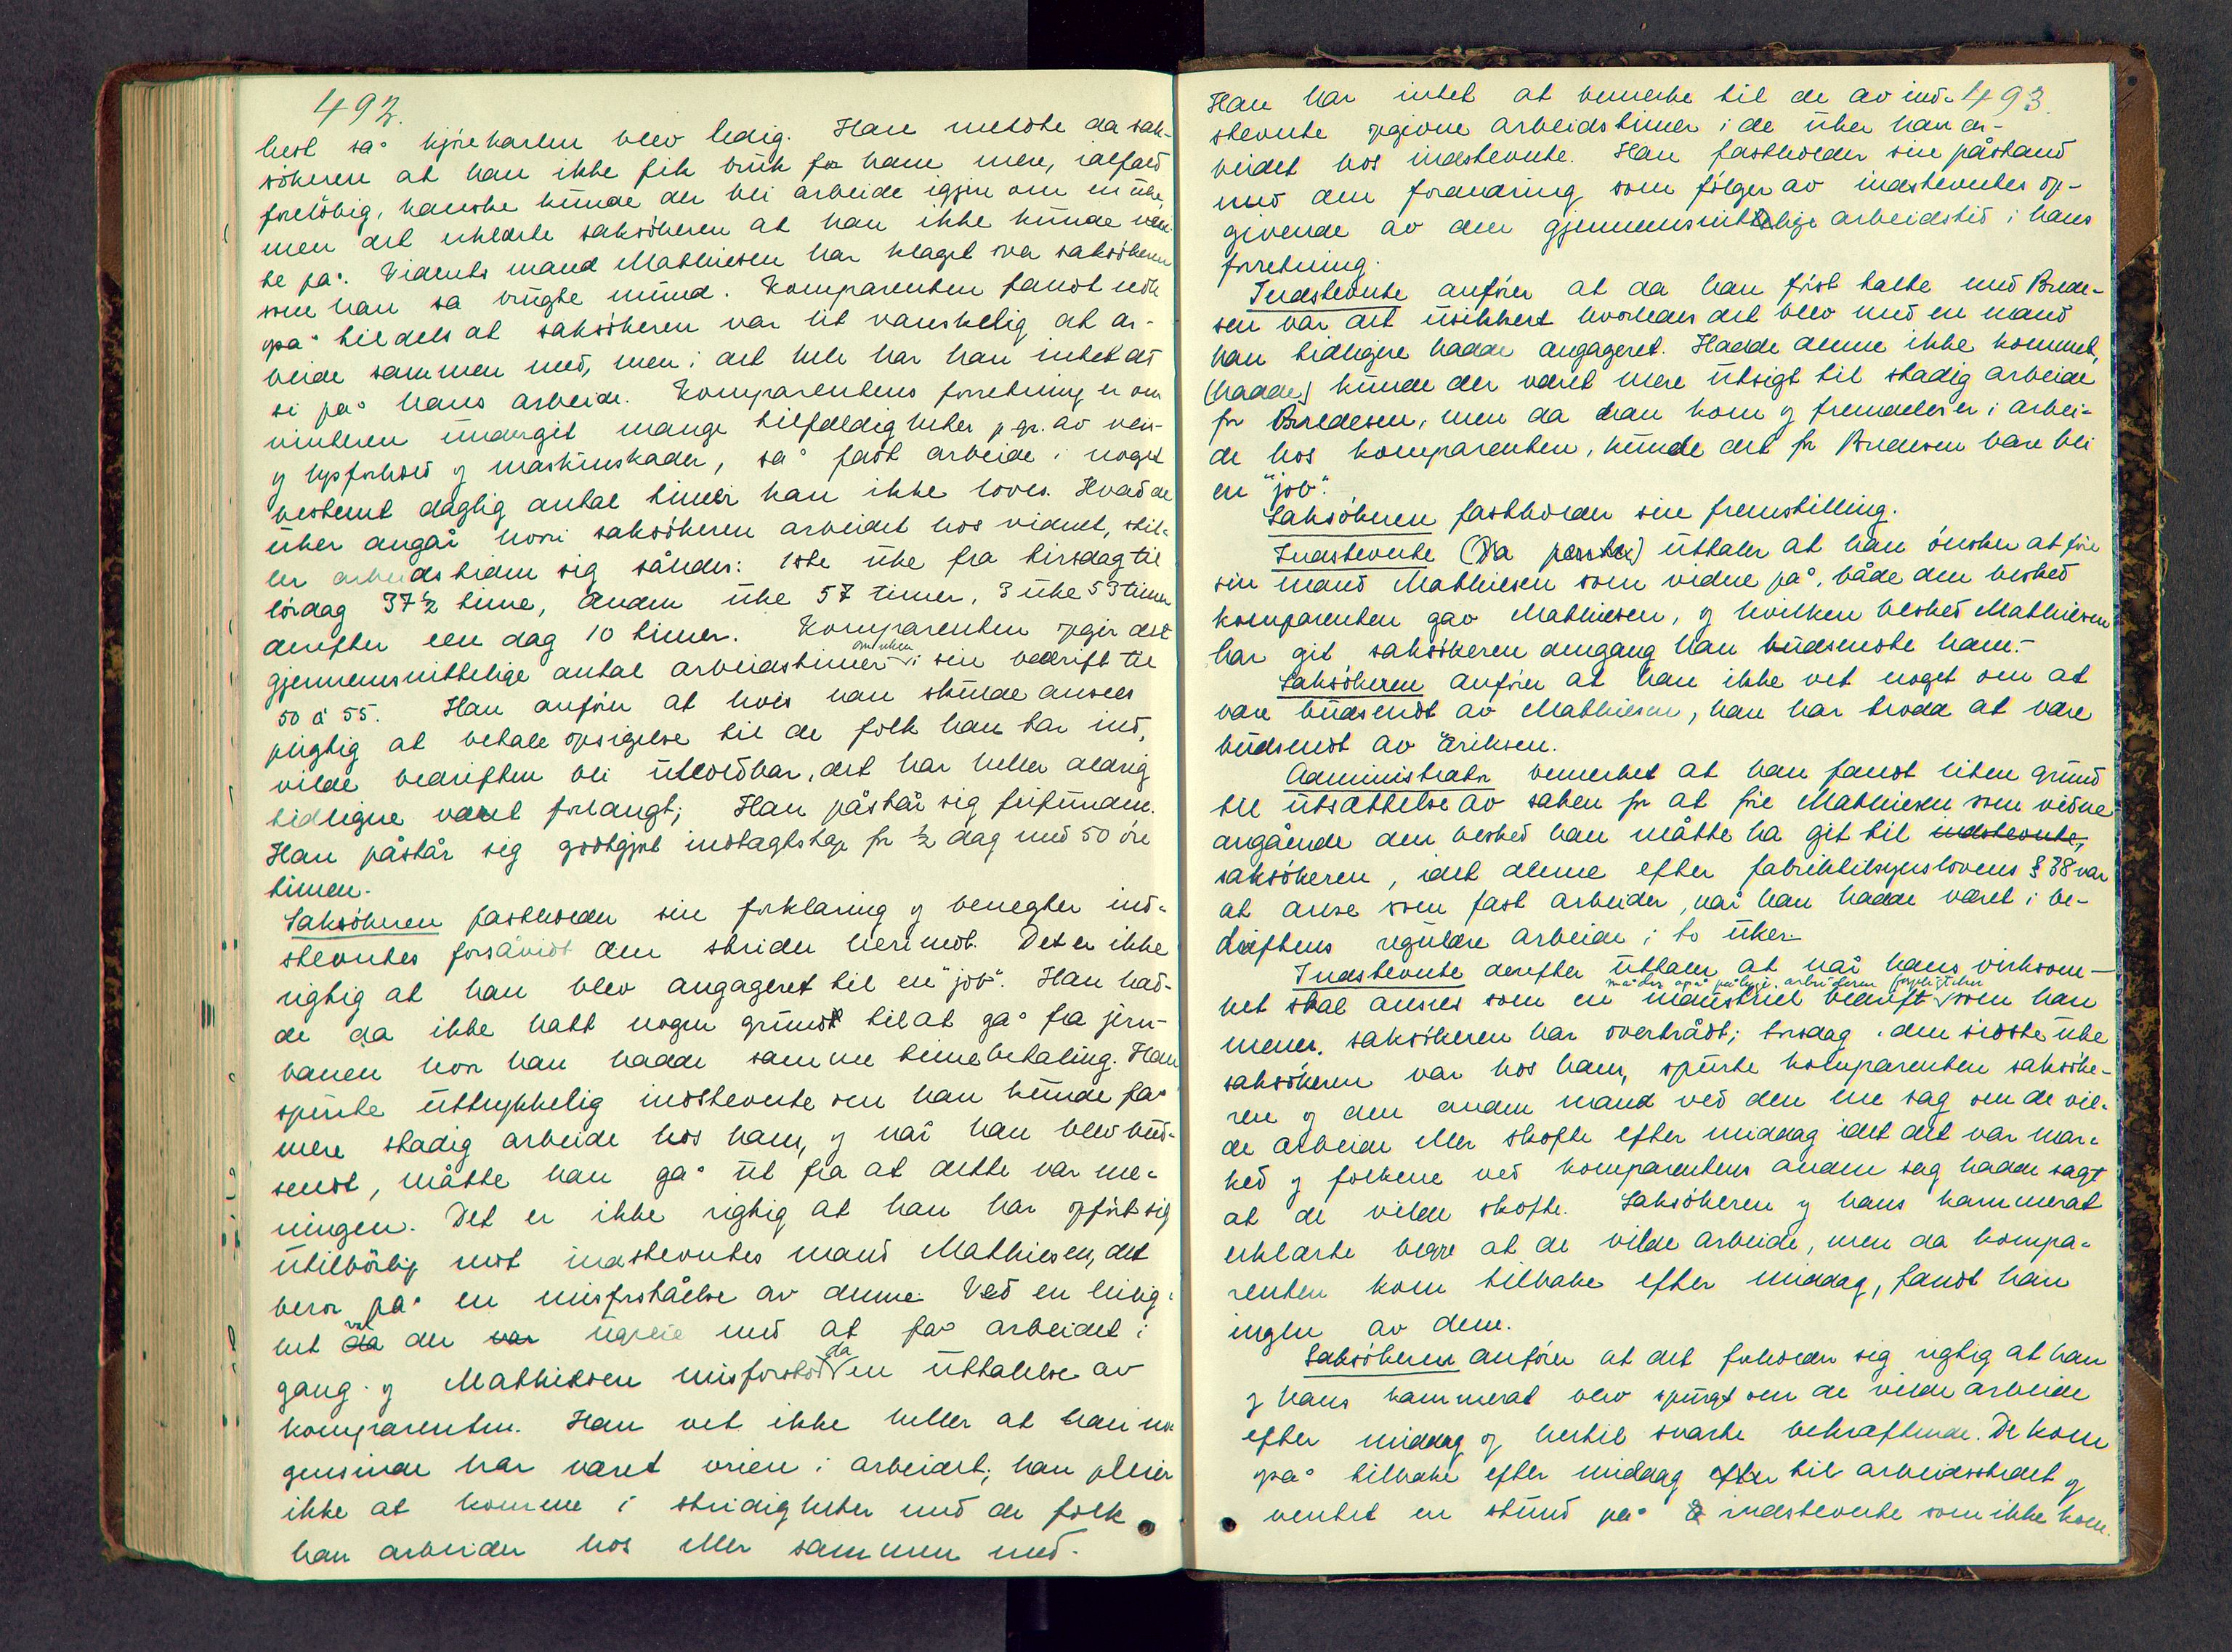 492.
hest så kjørekarlen blev ledig. Han meldte da sak-
søkeren at han ikke fik bruk for ham mere, ialfald
foreløbig, kanske kunde der bli arbeide igjen om en uke,
men det erklærte saksøkeren at han ikke kunde ven-
te på. Vidnets mand Mathiesen har klaget over saksøkeren
som han sa brugte mund. Komparenten fandt nok
også tildels at saksøkeren var litt vanskelig at ar-
beide sammen med, men i det hele har han intet at
si på hans arbeide. Komparentens forretning er om
vinteren undergit mange tilfældigheter p. gr. av veir-
og lysforhold og maskinskader, så fast arbeide i noget
bestemt daglig antal timer kan ikke loves. Hvad de
uker angår hvori saksøkeren arbeidet hos vidnet, stil-
ler arbeidstiden sig således: 1ste uke fra tirsdag til
lørdag 37½ time, anden uke 57 timer, 3 uke 53 timer
derefter een dag 10 timer. Komparenten opgir det
gjennemsnittelige antal arbeidstimer om uken i sin bedrift til
50 à 55. Han anfører at hvis han skulde ansees
pligtig at betale opsigelse til de folk han tar ind,
vilde bedriften bli uholdbar, det har heller aldrig
tidligere været forlangt; Han påstår sig frifunden.
Han påstår sig godtgjort indtægtstap for ½ dag med 50 øre
timen.
Saksøkeren fastholder sin forklaring og benegter ind-
stevntes forsåvidt den strider herimot. Det er ikke
rigtig at han blev engageret til en "job". Han had-
de da ikke hatt nogen grund til at gå fra jern-
banen hvor han hadde samme timebetaling. Han
spurte uttrykkelig indstevnte om han kunde få
mere stadig arbeide hos ham, og når han blev bud-
sendt, måtte han gå ut fra at dette var me-
ningen. Det er ikke rigtig at han har opført sig
utilbørlig mot indstevntes mand Mathiesen, det
beror på en misforståelse av denne. Ved en leilig-
het da var der var ugreie med at få arbeidet i
gang og Mathiesen misforstod da en uttalelse av
komparenten. Han vet ikke heller at han no-
gensinde har været vrien i arbeidet; han pleier
ikke at komme i stridigheter med de folk
han arbeider hos eller sammen med.
493.
Han har intet at bemerke til de av ind-
stevnte opgivne arbeidstimer i de uker han ar-
beidet hos indstevnte. Han fastholder sin påstand
med den forandring som følger av indstevntes op-
givende av den gjennemsnittelige arbeidstid i hans
forretning.
Indstevnte anfører at da han først talte med Brede-
sen var det usikkert hvorledes det blev med en mand
han tidligere hadde engageret. Hadde denne ikke kommet,
(hadde) kunde der været mere utsigt til stadig arbeide
for Bredesen, men da han kom og fremdeles er i arbei-
de hos komparenten, kunde det for Bredesen bare bli
en "job".
Saksøkeren fastholder sin fremstilling.
Indstevnte uttaler at han ønsker at føre
sin mand Mathiesen som vidne på, både den besked
komparenten gav Mathiesen, og hvilken besked Mathiesen
har git saksøkeren dengang han budsendte ham.
Saksøkeren anfører at han ikke vet noget om at
være budsendt av Mathiesen, han har trodd at være
budsendt av Eriksen.
Administrator bemerket at han fandt liten grund
til utsættelse av saken for at føre Mathiesen som vidne
angående den besked han måtte ha git til indstevnte,
saksøkeren, idet denne efter fabriktilsynslovens § 38 var
at anse som fast arbeider, når han hadde været i be-
driftens regulære arbeide i to uker.
Indstevnte derefter uttaler at når hans virksom-
het skal ansees som en industriel bedrift må der også påligge arbeideren forpligtelser som han
mener, saksøkeren har overtrådt; torsdag i den sidste uke
saksøkeren var hos ham, spurte komparenten saksøke-
ren og den anden mand ved den ene sag om de vil-
de arbeide eller skofte efter middag idet det var mar-
ked og folkene ved komparentens anden sag hadde sagt
at de vilde skofte. Saksøkeren og hans kammerat
erklærte begge at de vilde arbeide, men da kompa-
renten kom tilbake efter middag, fandt han
ingen av dem.
Saksøkeren anfører at det forholder sig rigtig at han
og hans kammerat blev spurgt om de vilde arbeide
efter middag og hertil svarte bekræftende. De kom
også tilbake efter middag efter til arbeidsstedet og
ventet en stund på indstevnte som ikke kom.